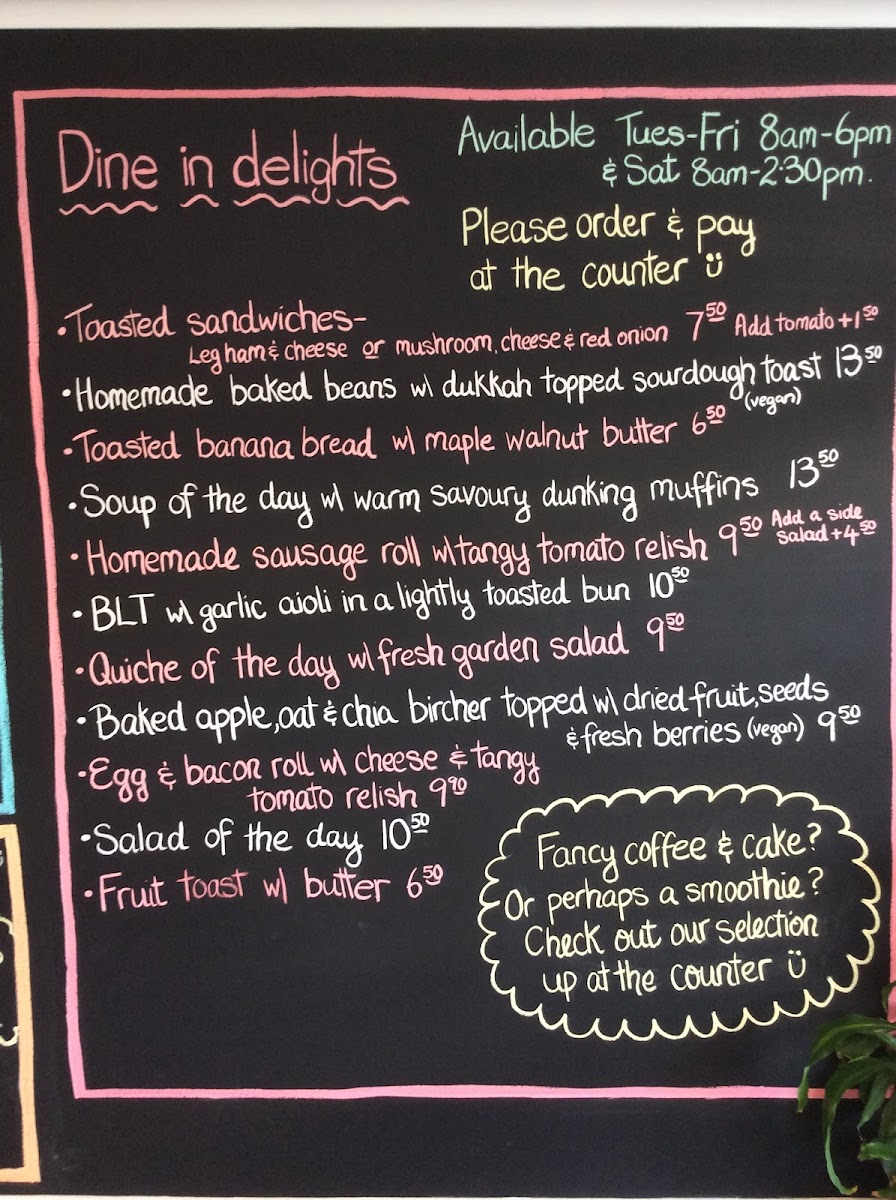 Dine in delights
Available Tues-Fri 8am-6pm
& Sat 8am-2:30pm.
Please order & pay
at the counter ü
• Toasted sandwiches-
Leg ham & cheese or mushroom, cheese & red onion 7⁵⁰ Add tomato +1⁵⁰
• Homemade baked beans w/ dukkah topped sourdough toast 13⁵⁰
(vegan)
• Toasted banana bread w/ maple walnut butter 6⁵⁰
• Soup of the day w/ warm savoury dunking muffins 13⁵⁰
• Homemade sausage roll w/ tangy tomato relish 9⁵⁰ Add a side
salad +4⁵⁰
• BLT w/ garlic aioli in a lightly toasted bun 10⁵⁰
• Quiche of the day w/ fresh garden salad 9⁵⁰
• Baked apple, oat & chia bircher topped w/ dried fruit, seeds
& fresh berries (vegan) 9⁵⁰
• Egg & bacon roll w/ cheese & tangy
tomato relish 9⁹⁰
• Salad of the day 10⁵⁰
• Fruit toast w/ butter 6⁵⁰
Fancy coffee & cake?
Or perhaps a smoothie?
Check out our selection
up at the counter ü